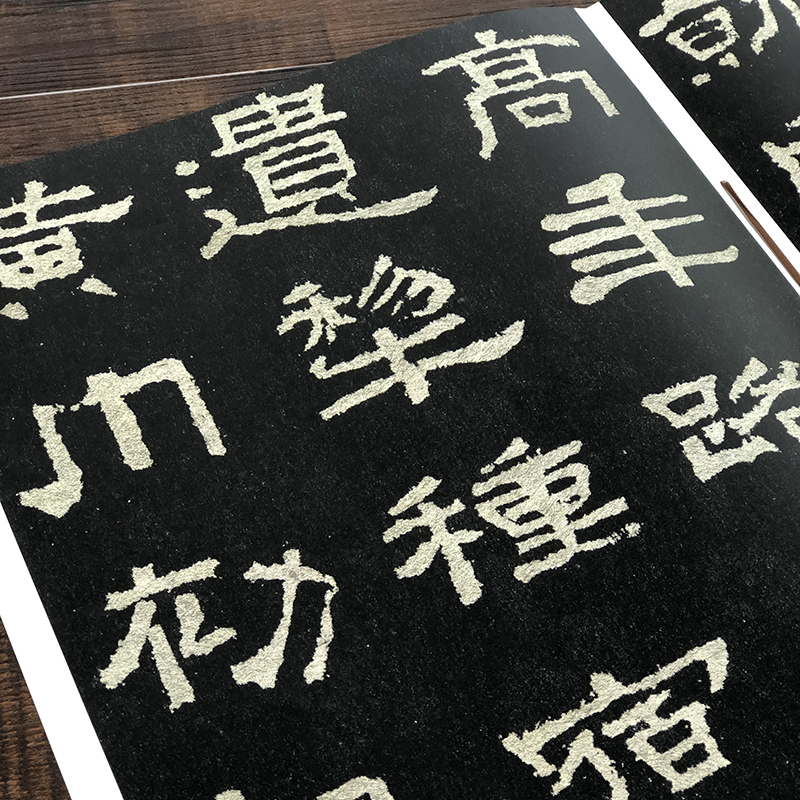 高年路
遺犂種宿
黃巾初